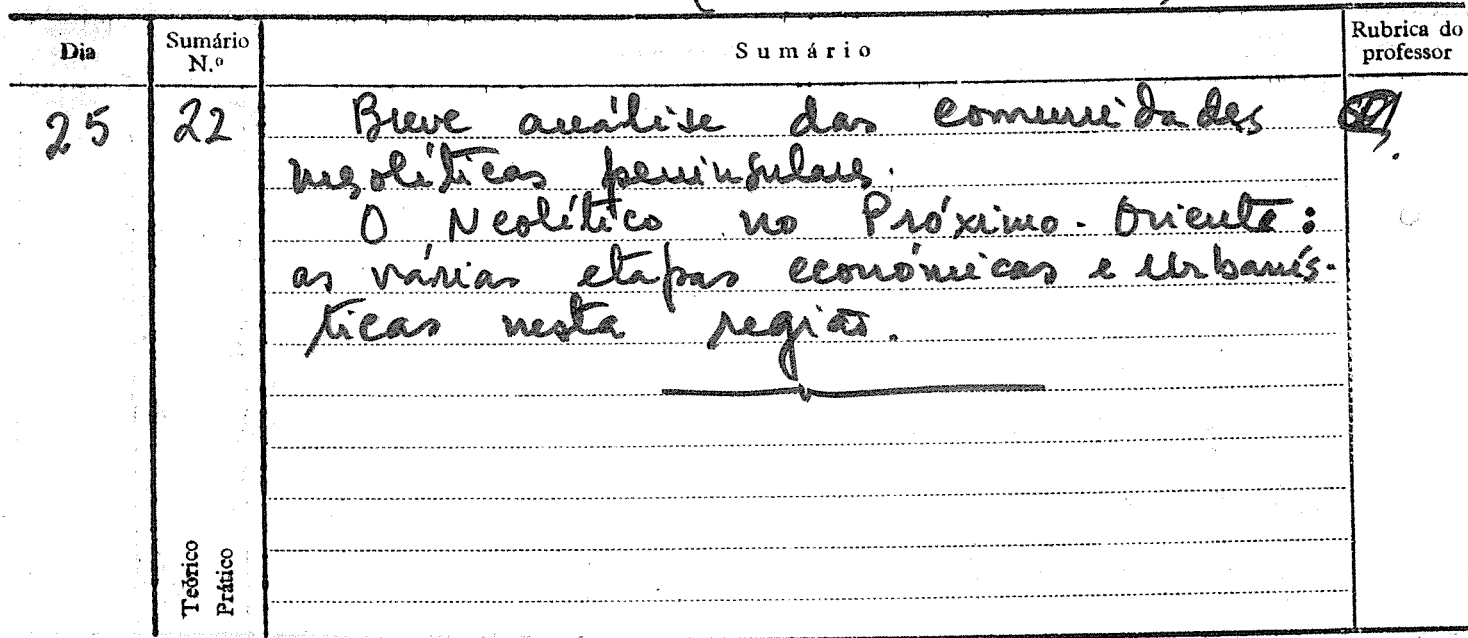 Dia Sumário N.º Sumário Rubrica do professor
25 22 Breve análise das comunidades
mesolíticas peninsulares.
O Neolítico no Próximo-Oriente:
as várias etapas económicas e urbanís-
ticas nesta região.
Teórico
Prático